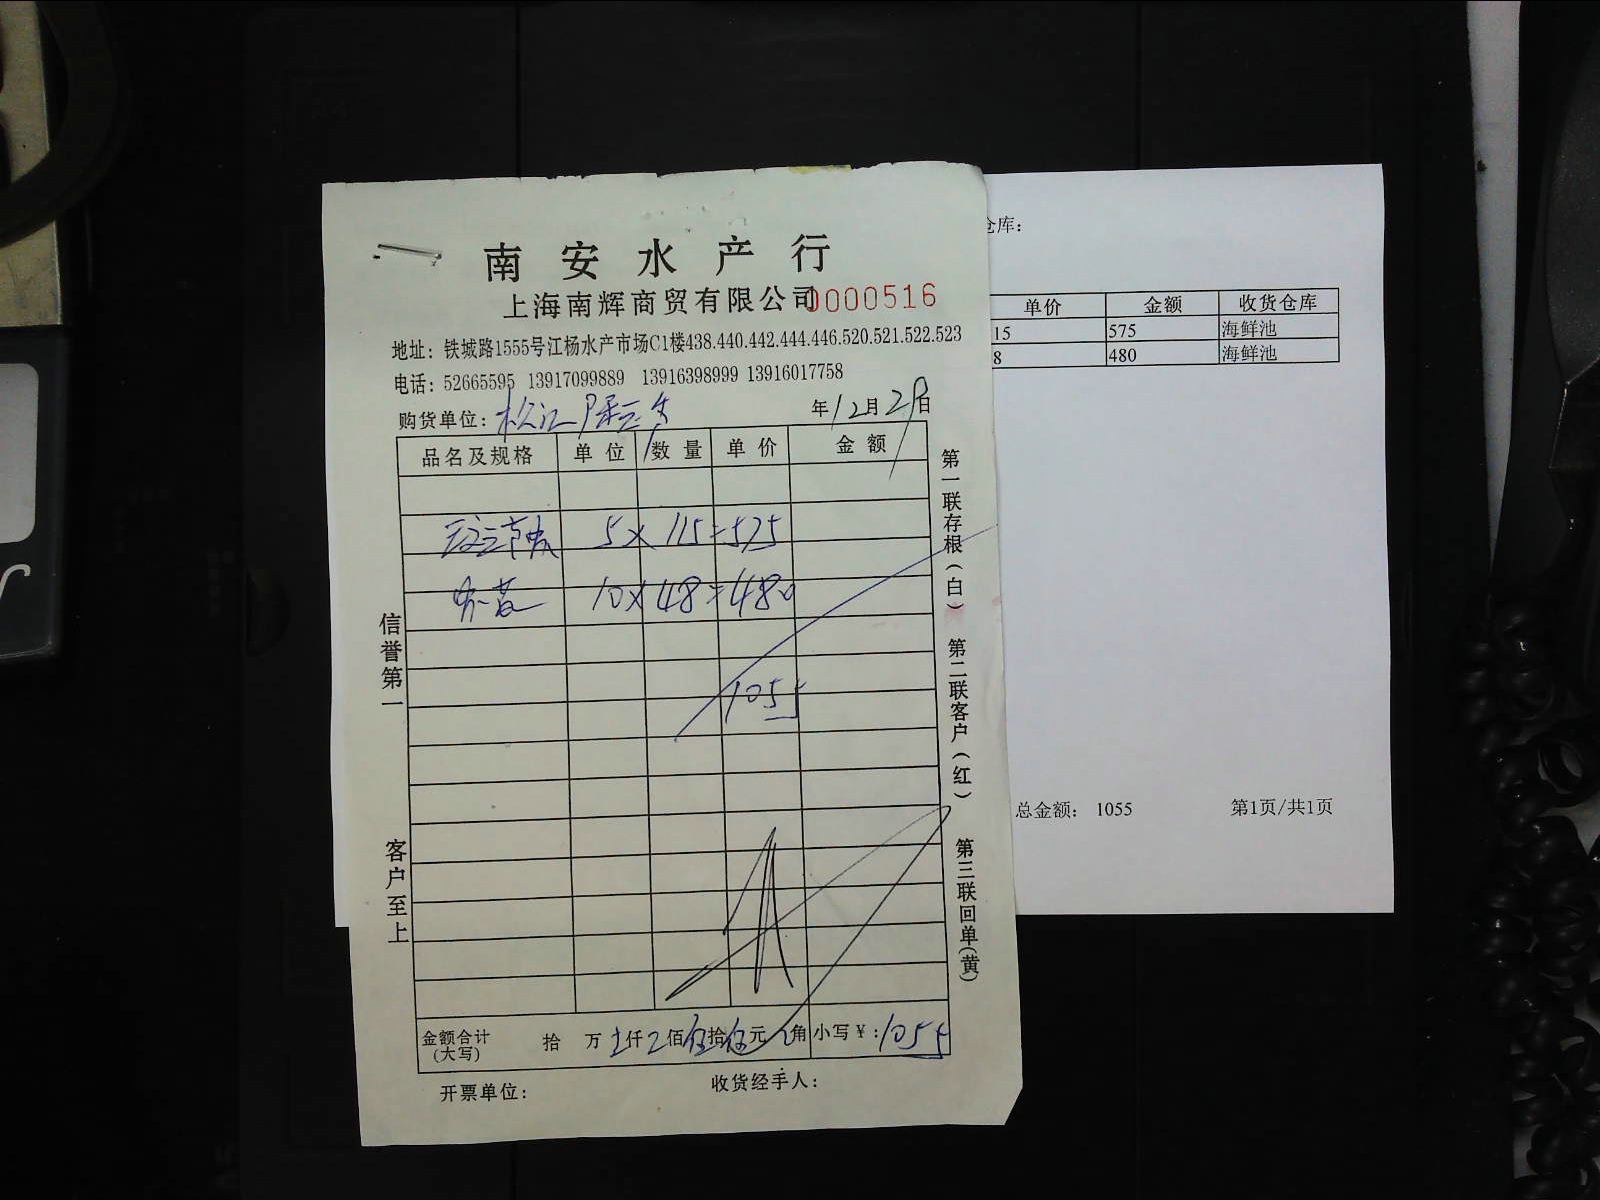 南安水产行
上海南辉商贸有限公司0000516
地址：铁城路1555号江杨水产市场C1楼438.440.442.444.446.520.521.522.523
电话：52665595 13917099889 13916398999 13916017758
购货单位：松江
年12月29日
品名及规格 单位 数量 单价 金额
5×115=575
10×48=480
1055
金额合计(大写) 拾 万 仟 佰伍拾伍元 角 小写￥：1055
开票单位： 收货经手人：
信誉第一 客户至上
第一联存根（白） 第二联客户（红） 第三联回单（黄）
仓库：
单价 金额 收货仓库
15 575 海鲜池
8 480 海鲜池
总金额： 1055 第1页/共1页